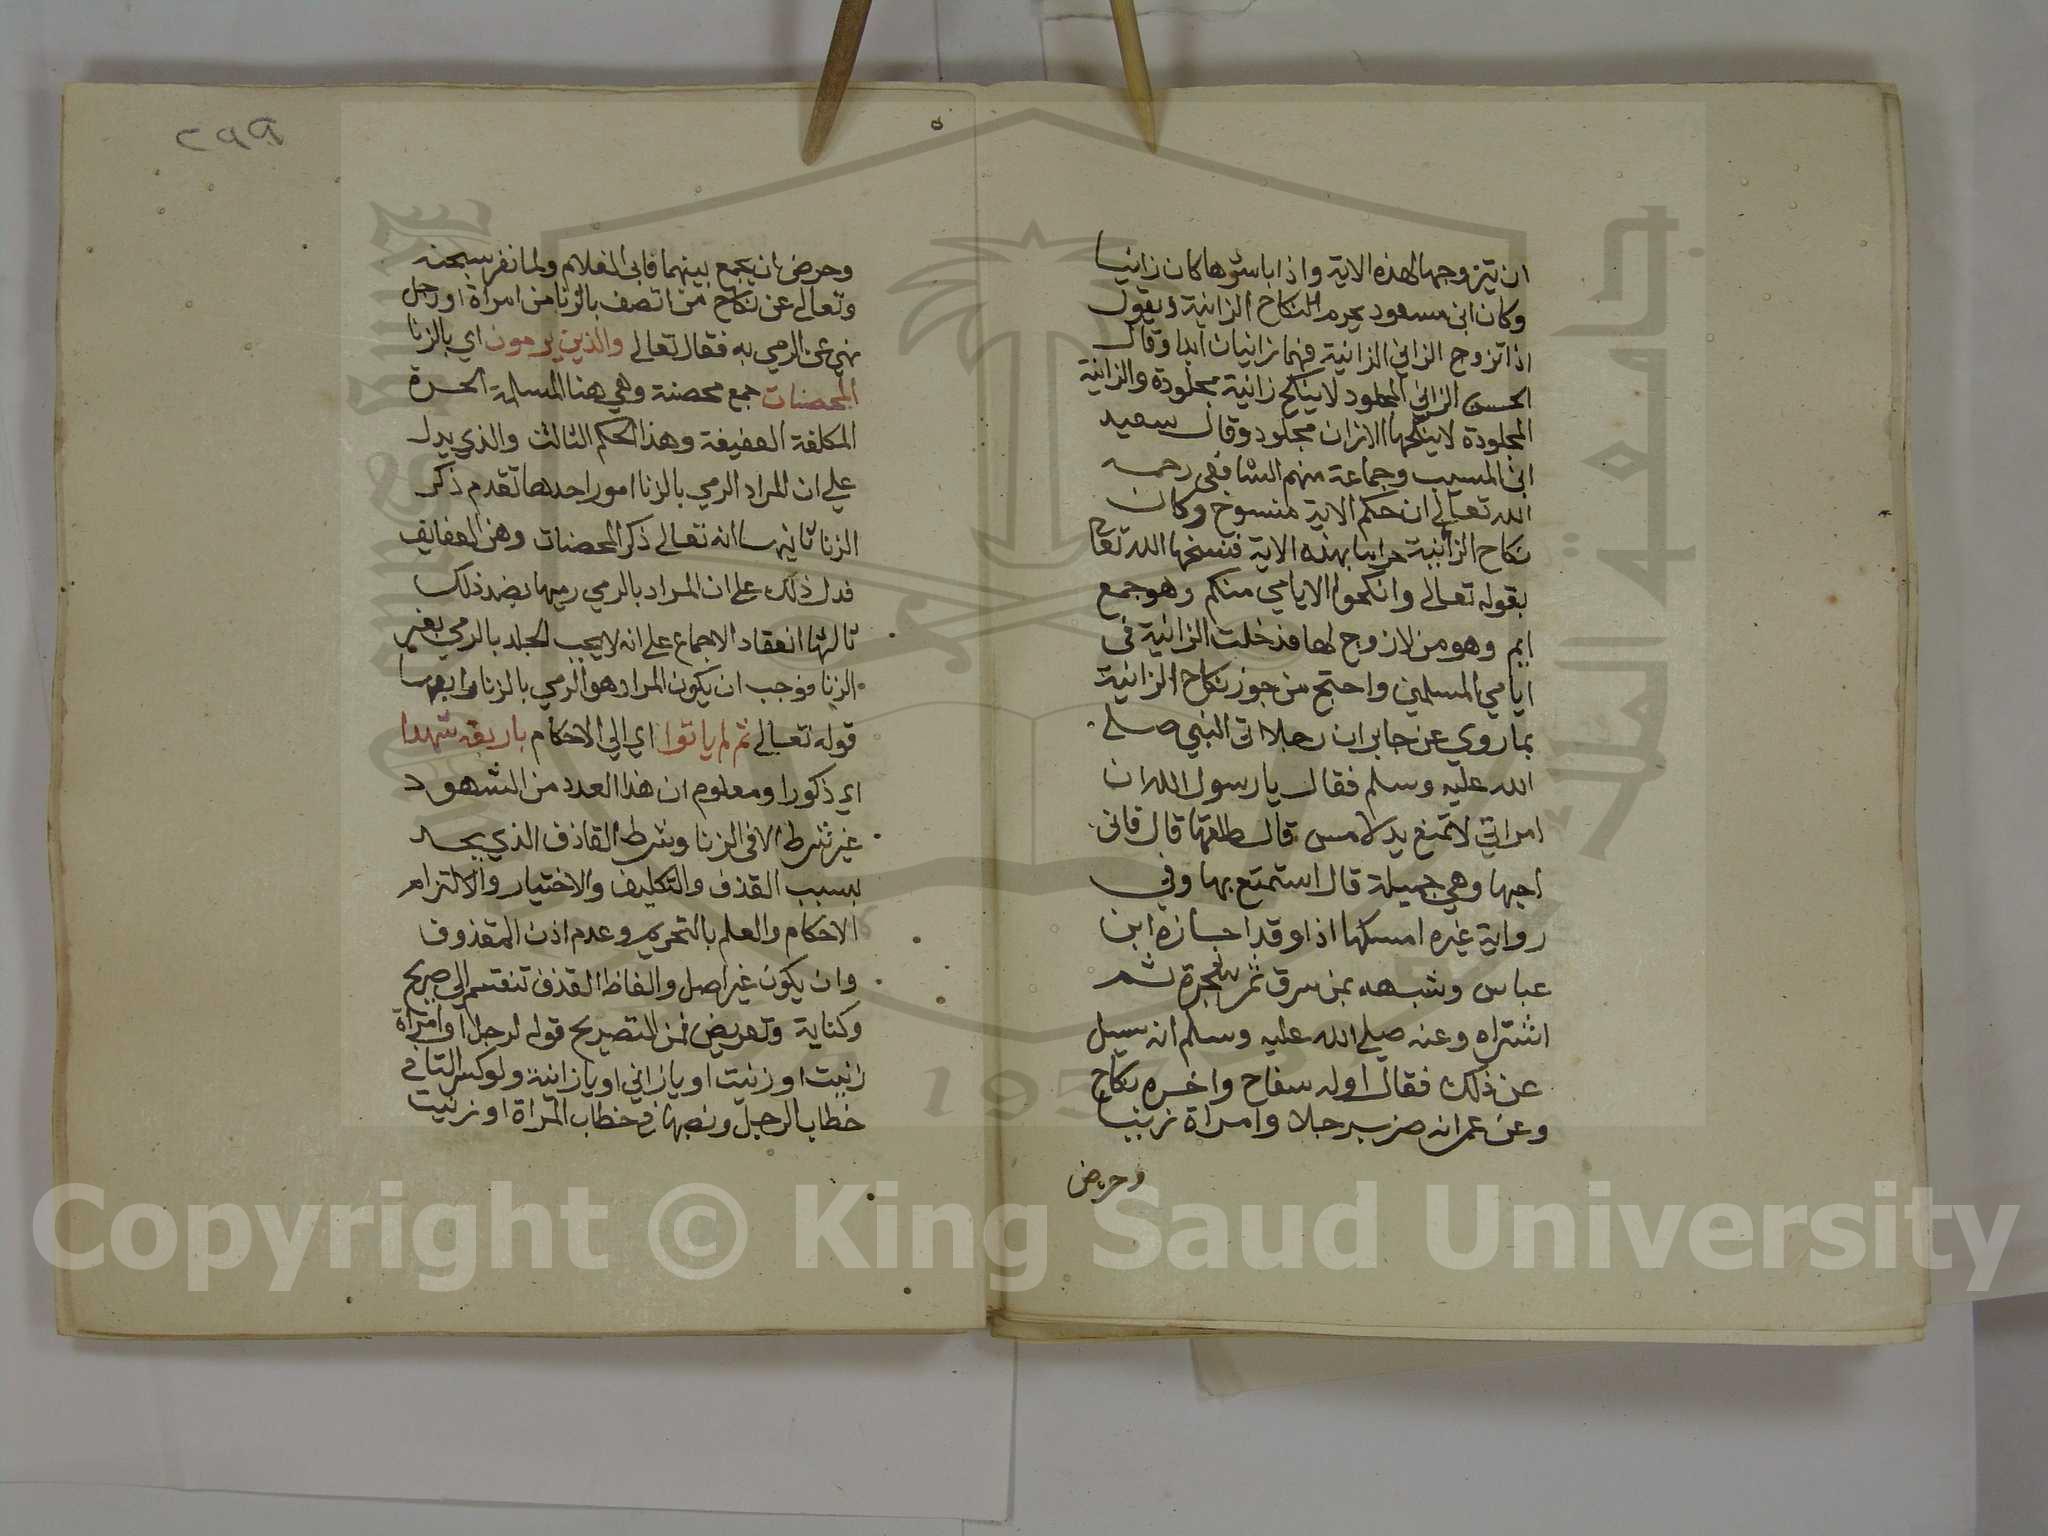 ان يتزوجها لهذه الاية واذا باشرها كان زانيا
وكان ابن مسعود يحرم النكاح الزانية ويقول
اذا تزوج الزاني الزانية فهما زانيان ابدا وقال
الحسن الزاني المجلود لا ينكح زانية مجلودة والزانية
المجلودة لا ينكحها الا زان مجلود وقال سعيد
ابن المسيب وجماعة منهم الشافعى رحمه
الله تعالى ان حكم الاية منسوخ وكان
نكاح الزانية حراما بهذه الاية فنسخها الله تعالى
بقوله تعالى وانكحوا الايامي منكم وهو جمع
ايم وهو من لا زوج لها فدخلت الزانية في
ايامي المسلمين واحتج من جوز نكاح الزانية
بما روي عن جابر ان رجلا اتى النبي صلى
الله عليه وسلم فقال يا رسول الله ان
امراتي لا تمنع يد لامس قال طلقها قال فانى
احبها وهي جميلة قال استمتع بها وفي
رواية غيره امسكها اذا وقد اجازه ابن
عباس وشبهه بمن سرق ثمر شجرة ثم
اشتراه وعنه صلى الله عليه وسلم انه سيل
عن ذلك فقال اوله سفاح واخره نكاح
وعن عمر انه ضرب رجلا وامراة زنيا
وحرض
٥
وحرض ان يجمع بينهما فابى الغلام ولما نفر سبحنه
وتعالى عن نكاح من اتصف بالزنا من امراة او رجل
نهي عن الرمي به فقال تعالى والذين يرمون اي بالزنا
المحصنات جمع محصنة وهي هنا المسلمة الحرة
المكلفة العفيفة وهذا الحكم الثالث والذي يدل
علي ان المراد الرمي بالزنا امور احدها تقدم ذكر
الزنا ثانيها انه تعالى ذكر المحصنات وهن العفايف
فدل ذلك على ان المراد بالرمي رميها بضد ذلك
ثالثها انعقاد الاجماع على انه لا يجب الجلد بالرمي بغير
الزنا فوجب ان يكون المراد هو الرمي بالزنا رابعها
قوله تعالى ثم لم ياتوا اي الي الاحكام باربعة شهدا
اي ذكورا ومعلوم ان هذا العدد من الشهود
غير شرط الا في الزنا وشرط القاذف الذي يحد
بسبب القذف والتكليف والاختيار والالتزام
الاحكام والعلم بالتحريم وعدم اذن المقذوف
وان يكون غير اصل والفاظ القذف تنقسم الى صريح
وكناية وتعريض فمن التصريح قوله لرجل او امراة
زنيت او زنيت او يا زاني او يا زانية ولو كسر التا في
خطاب الرجل ونصبها في خطاب المراة او زنيت
Copyright © King Saud University
جامعة الملك سعود
195